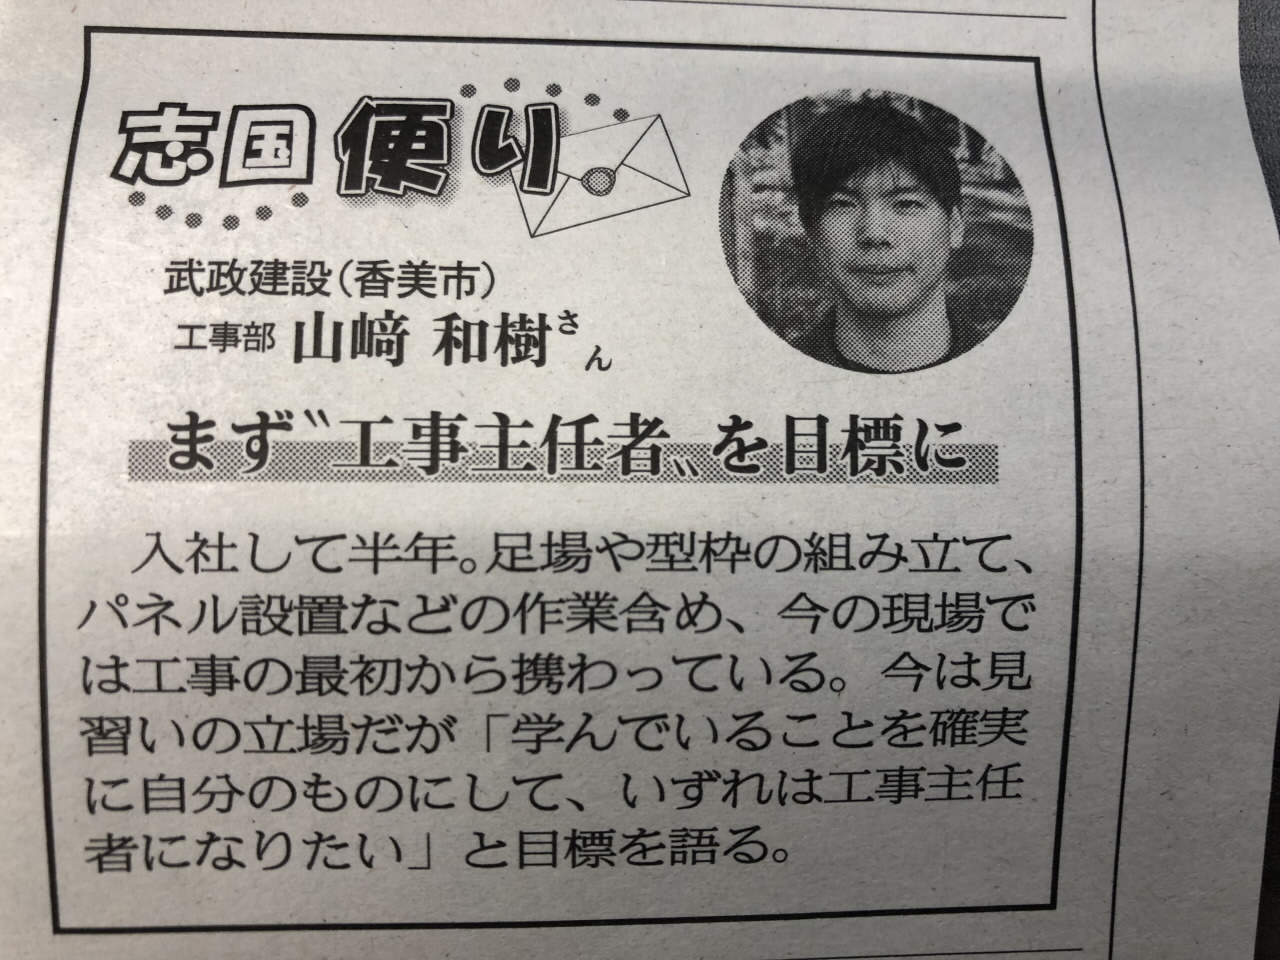 志国便り
武政建設（香美市）
工事部 山﨑 和樹さん
まず〝工事主任者〟を目標に
入社して半年。足場や型枠の組み立て、
パネル設置などの作業含め、今の現場で
は工事の最初から携わっている。今は見
習いの立場だが「学んでいることを確実
に自分のものにして、いずれは工事主任
者になりたい」と目標を語る。